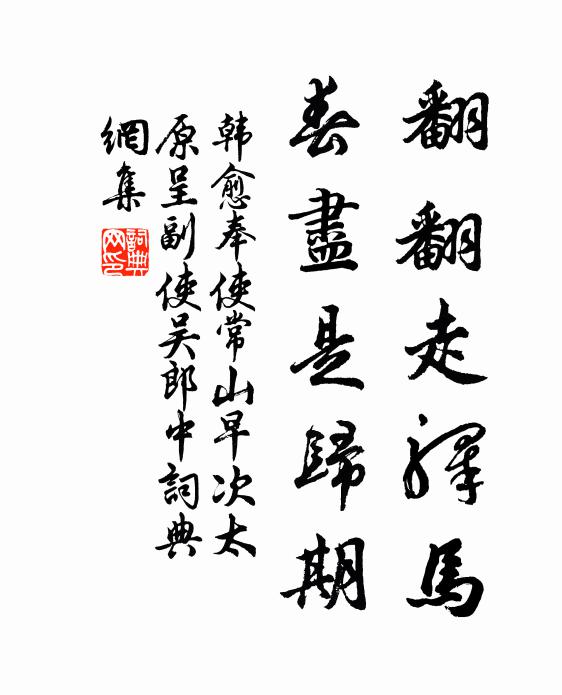 翻翻走驛馬
春盡是歸期
韓愈奉使常山早次太
原呈副使吳郎中詞典
網集
詞典
网印